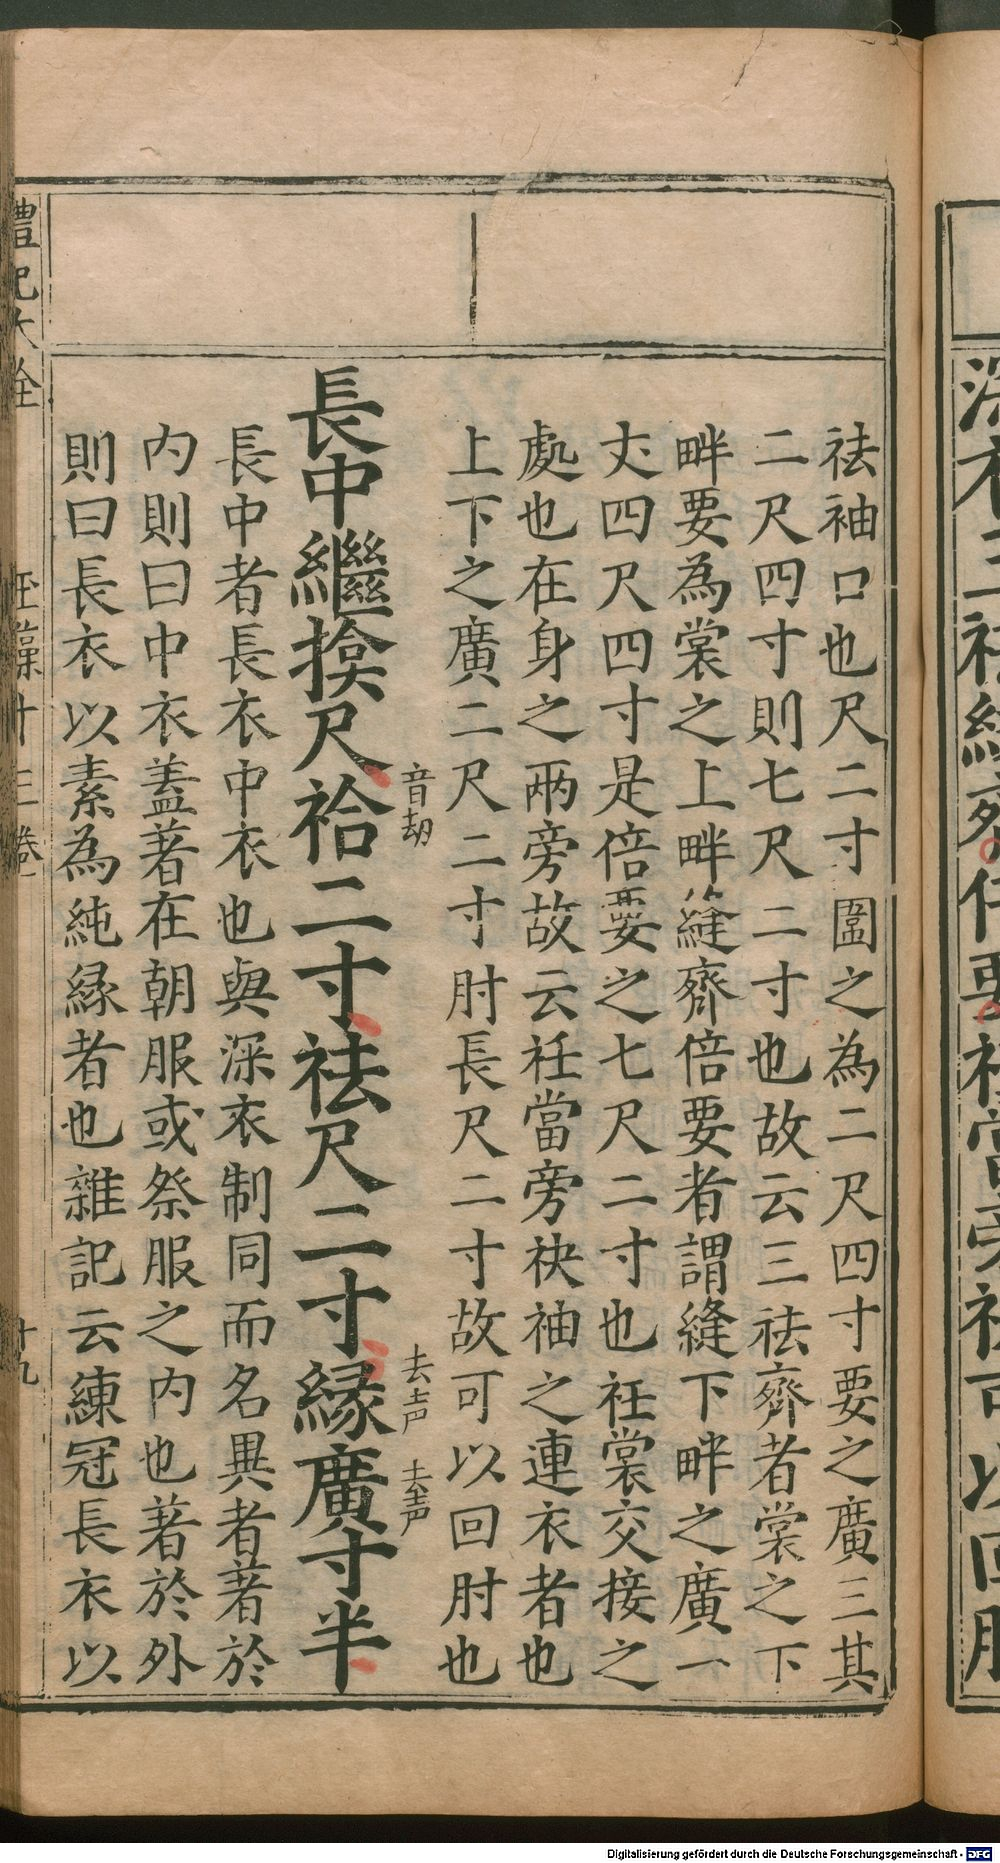 袪袖口也尺二寸圍之為二尺四寸要之廣三其
二尺四寸則七尺二寸也故云三袪齊者裳之下
畔要為裳之上畔縫齊倍要者謂縫下畔之廣一
丈四尺四寸是倍要之七尺二寸也衽裳交接之
處也在身之兩旁故云衽當旁袂袖之連衣者也
上下之廣二尺二寸肘長尺二寸故可以回肘也
長中繼揜尺袷二寸袪尺二寸緣廣寸半
音劫
去声
去声
長中者長衣中衣也與深衣制同而名異者著於
內則曰中衣蓋著在朝服或祭服之內也著於外
則曰長衣以素為純緣者也雜記云練冠長衣以
禮記大全
玉藻十三卷
十九
深衣三袪縫齊倍要衽當旁袂可以回肘
Digitalisierung gefördert durch die Deutsche Forschungsgemeinschaft - DFG